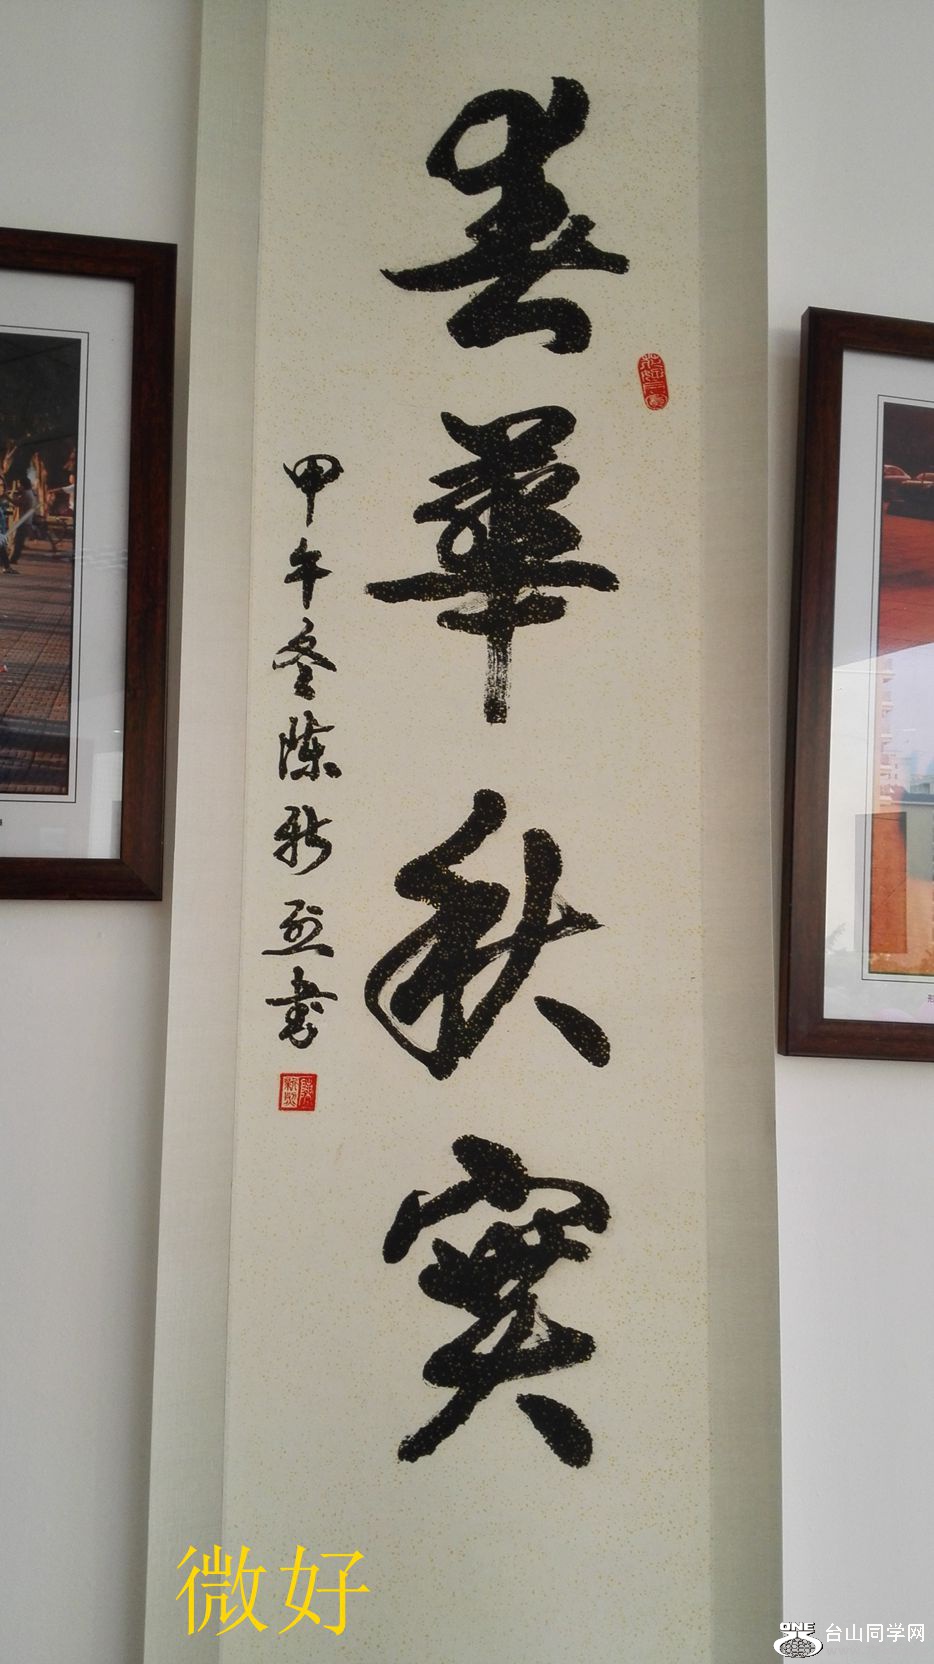 春華秋實
甲午冬陳新烈書
微好
ONE
台山同学网